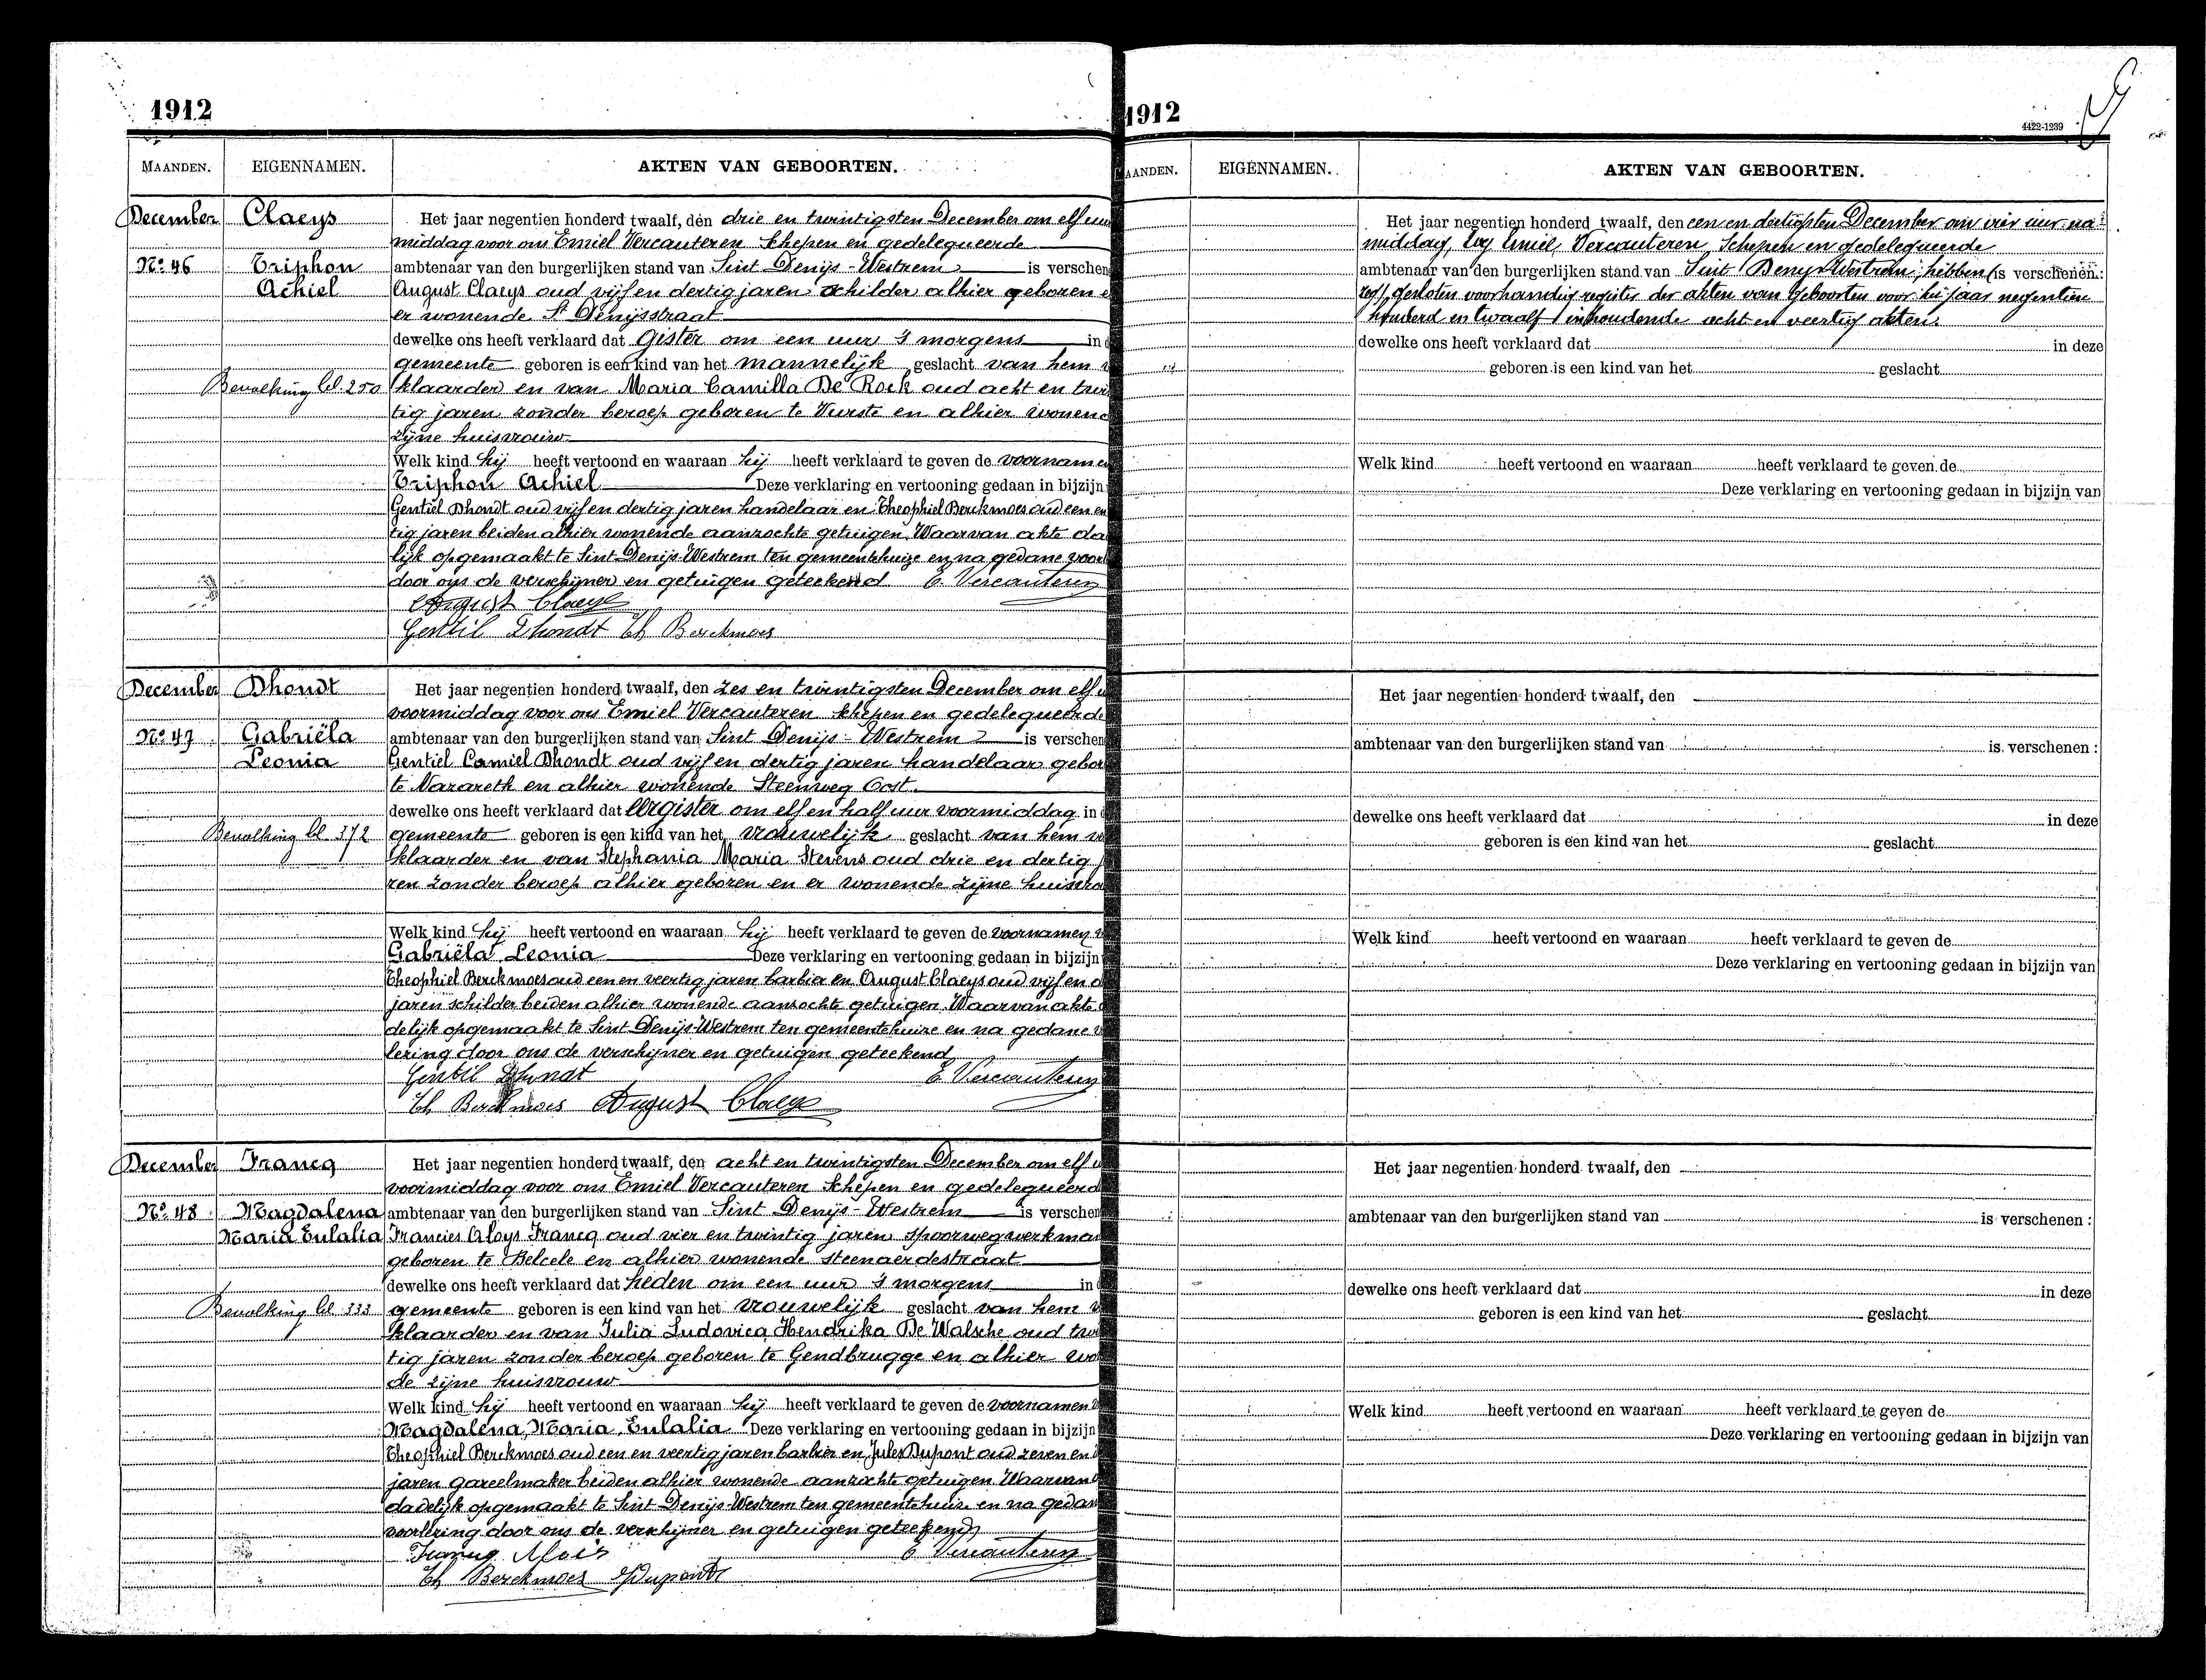 1912
MAANDEN. EIGENNAMEN. AKTEN VAN GEBOORTEN.
December Claeys Het jaar negentien honderd twaalf, den drie en twintigsten December om elf uur
middag voor ons Emiel Vercauteren Schepen en gedelegueerde
No 46 Triphon ambtenaar van den burgerlijken stand van Sint Denijs-Westrem is verschen
Achiel August Claeys oud vijf en dertig jaren schilder alhier geboren e
er wonende St Denijsstraat
dewelke ons heeft verklaard dat Gister om een uur 's morgens in
gemeente geboren is een kind van het mannelijk geslacht van hem
Bevolking bl. 250 klaarder en van Maria Camilla De Rock oud acht en twin
tig jaren zonder beroep geboren te Vurste en alhier wonen
zijne huisvrouw
Welk kind hij heeft vertoond en waaraan hij heeft verklaard te geven de voornamen
Triphon Achiel Deze verklaring en vertooning gedaan in bijzijn
Gentiel Dhondt oud vijf en dertig jaren handelaar en Theophiel Berckmoes oud een en
tig jaren beiden alhier wonende aanzochte getuigen. Waarvan akte da
lijk opgemaakt te Sint-Denijs-Westrem ten gemeentehuize en na gedane voor
door ons de verschijner en getuigen geteekend E. Vercauteren
August Claeys
Gentil Dhondt Th Berckmoes
December Dhondt Het jaar negentien honderd twaalf, den zes en twintigsten December om elf u
voormiddag voor ons Emiel Vercauteren Schepen en gedelegueerde
No 47 Gabriëla ambtenaar van den burgerlijken stand van Sint Denijs-Westrem is verschen
Leonia Gentiel Camiel Dhondt oud vijf en dertig jaren handelaar gebor
te Nazareth en alhier wonende Steenweg Oost.
dewelke ons heeft verklaard dat Eergister om elf en half uur voormiddag in
Bevolking bl. 372 gemeente geboren is een kind van het vrouwelijk geslacht van hem v
klaarder en van Stephania Maria Stevens oud drie en dertig
ren zonder beroep alhier geboren en er wonende zijne huisvro
Welk kind hij heeft vertoond en waaraan hij heeft verklaard te geven de voornamen
Gabriëla Leonia Deze verklaring en vertooning gedaan in bijzijn
Theophiel Berckmoes oud een en veertig jaren barbier en August Claeys oud vijf en d
jaren schilder beiden alhier wonende aanzochte getuigen. Waarvan akte
delijk opgemaakt te Sint-Denijs-Westrem ten gemeentehuize en na gedane v
lezing door ons de verschijner en getuigen geteekend
Gentil Dhondt E. Vercauteren
Th Berckmoes August Claeys
December Francq Het jaar negentien honderd twaalf, den acht en twintigsten December om elf u
voormiddag voor ons Emiel Vercauteren Schepen en gedelegueerd
No 48 Magdalena ambtenaar van den burgerlijken stand van Sint Denijs-Westrem is verschen
Maria Eulalia Francies Aloys Francq oud vier en twintig jaren spoorwegwerkman
geboren te Belcele en alhier wonende Steenaerdestraat
dewelke ons heeft verklaard dat heden om een uur 's morgens in
Bevolking bl. 333 gemeente geboren is een kind van het vrouwelijk geslacht van hem v
klaarder en van Julia Ludovica Hendrika De Walsche oud twin
tig jaren zonder beroep geboren te Gendbrugge en alhier wo
de zijne huisvrouw
Welk kind hij heeft vertoond en waaraan hij heeft verklaard te geven de voornamen
Magdalena, Maria, Eulalia Deze verklaring en vertooning gedaan in bijzijn
Theophiel Berckmoes oud een en veertig jaren barbier en Jules Dupont oud zeven en
jaren gareelmaker beiden alhier wonende aanzochte getuigen. Waarvan
dadelijk opgemaakt te Sint Denijs-Westrem ten gemeentehuize en na gedan
voorlezing door ons de verschijner en getuigen geteekend
Francq Aloïs E. Vercauteren
Th Berckmoes JDupont
1912
4422-1239
AANDEN. EIGENNAMEN. AKTEN VAN GEBOORTEN.
Het jaar negentien honderd twaalf, den een en dertigsten December om vier uur na-
middag, wij Emiel Vercauteren, Schepen en gedelegueerde
ambtenaar van den burgerlijken stand van Sint Denijs Westrem, hebben (is verschenen:
gesloten voorhandig register der akten van Geboorten voor het jaar negentien
honderd en twaalf inhoudende acht en veertig akten.
dewelke ons heeft verklaard dat in deze
geboren is een kind van het geslacht
Welk kind heeft vertoond en waaraan heeft verklaard te geven de
Deze verklaring en vertooning gedaan in bijzijn van
Het jaar negentien honderd twaalf, den
ambtenaar van den burgerlijken stand van is verschenen :
dewelke ons heeft verklaard dat in deze
geboren is een kind van het geslacht
Welk kind heeft vertoond en waaraan heeft verklaard te geven de
Deze verklaring en vertooning gedaan in bijzijn van
Het jaar negentien honderd twaalf, den
ambtenaar van den burgerlijken stand van is verschenen :
dewelke ons heeft verklaard dat in deze
geboren is een kind van het geslacht
Welk kind heeft vertoond en waaraan heeft verklaard te geven de
Deze verklaring en vertooning gedaan in bijzijn van